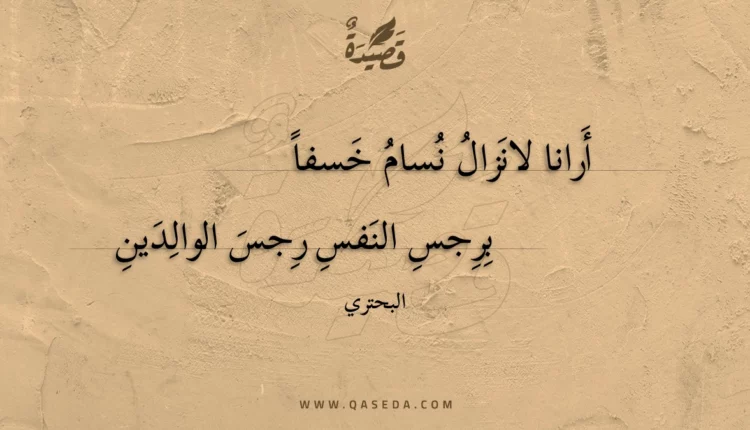 قَصِيدَةٌ
أَرانا لانَزالُ نُسامُ خَسفاً
بِرِجسِ النَفسِ رِجسَ الوالِدَينِ
البحتري
WWW.QASEDA.COM